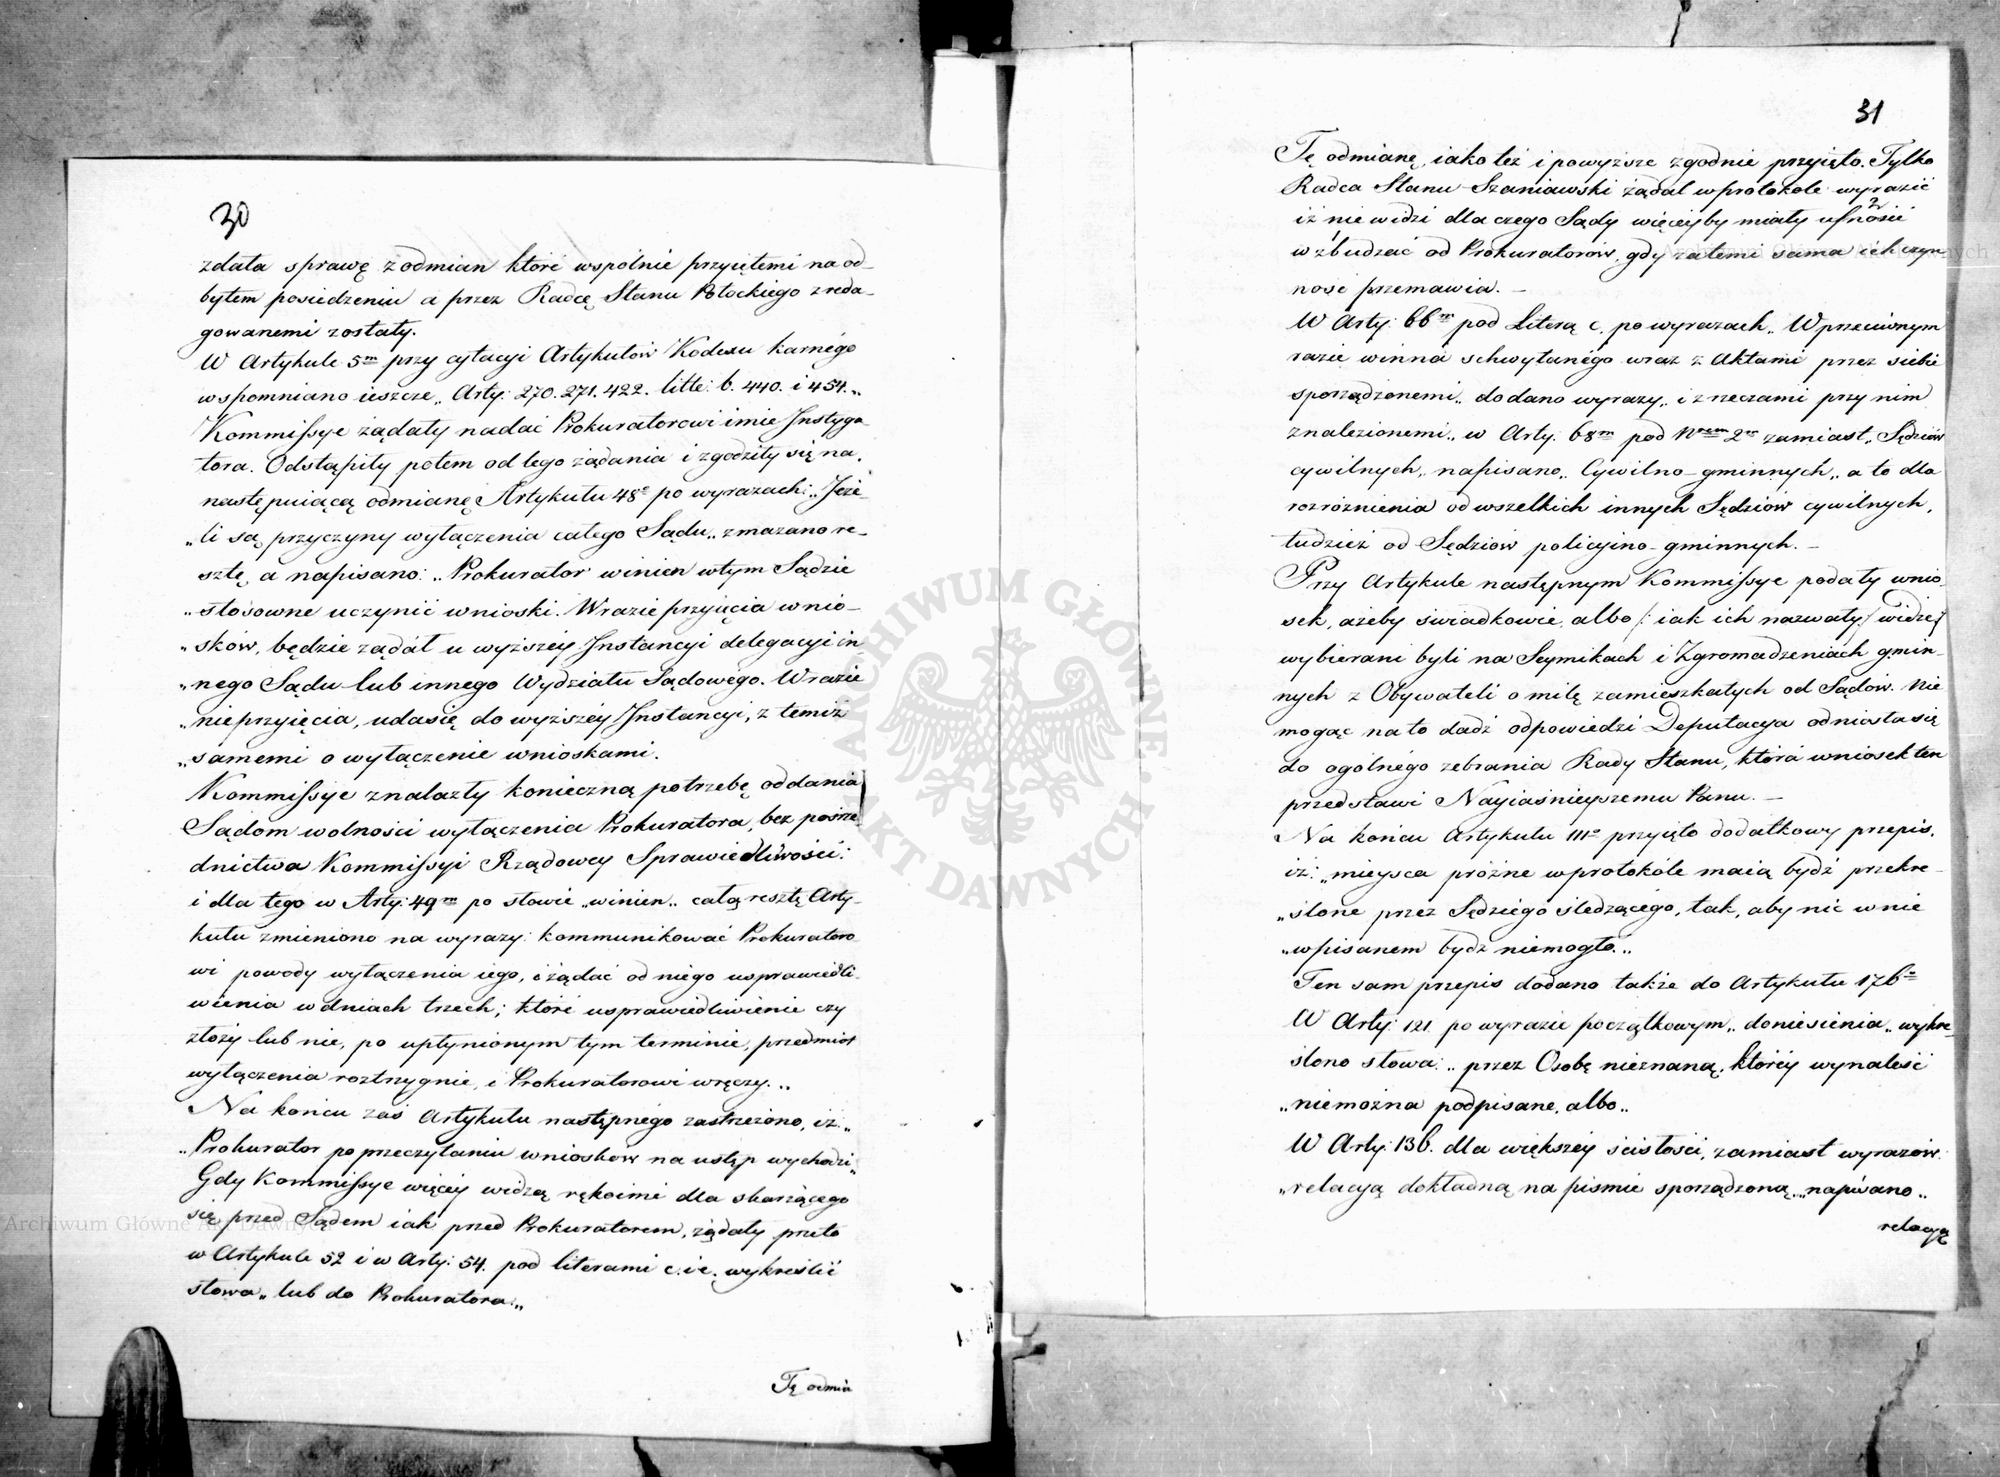 30
zdała sprawę z odmian które wspólnie przyiętemi na od-
bytem posiedzeniu a przez Radcę Stanu Potockiego zreda-
gowanemi zostały.
W Artykule 5m przy cytacyi Artykułów Kodexu karnégo
wspomniano ieszcze„ Arty: 270. 271. 422. litte: b. 440. i 454.„
Kommissye żądały nadać Prokuratorowi imie Instyga-
tora. Odstąpiły potem od tego żądania i zgodziły się na
następuiącą odmianę Artykułu 48o po wyrazach: „Jeże-
„li są przyczyny wyłączenia całego Sądu„ zmazano re-
sztę, a napisano: „Prokurator winien w tym Sądzie
„stósowne uczynić wnioski. W razie przyięcia wnio-
„sków, będzie żądał u wyższéy Instancyi delegacyi in-
„nego Sądu lub innego Wydziału Sądowego. W razie
„nieprzyięcia, uda się do wyższéy Instancyi, z temiż
„samemi o wyłączenie wnioskami.
Kommissye znalazły konieczną potrzebę oddania
Sądom wolności wyłączenia Prokuratora, bez pośre-
dnictwa Kommissyi Rządowey Sprawiedliwości:
i dla tego w Arty: 49m po słowie „winien„ całą resztę Arty-
kułu zmieniono na wyrazy: kommunikować Prokurato-
wi powody wyłączenia iego, i żądać od niego usprawiedli-
wienia w dniach trzech; któré usprawiedliwienie czy
złoży lub nie, po upłynionym tym terminie, przedmiot
wyłączenia roztrzygnie, i Prokuratorowi wręczy.„
Na końcu zaś Artykułu następnégo zastrzeżono, iż: „
„Prokurator po przeczytaniu wniosków na ustęp wychodzi„
Gdy Kommissye więcéy widzą rękoimi dla skarżącego
się przed Sądem iak przed Prokuratorem, żądały przeto
w Artykule 52 i w Arty: 54. pod literami c. i e. wykreślić
słowa„ lub do Prokuratora.„
Tę odmia
31
Tę odmianę, iako też i powyższe zgodnie przyięto. Tylko
Radca Stanu Szaniawski żądał w protokóle wyrazić
iż nie widzi dla czego Sądy więcéyby miały ufności
wzbudzać od Prokuratorów, gdy za temi sama ich czyn-
ność przemawia. —
W Arty: 66m pod Literą c. po wyrazach„ W przeciwnym
razie winna schwytanégo wraz z Aktami przez siebie
sporządzonemi„ dodano wyrazy„ i z rzeczami przy nim
znalezionemi„ w Arty: 68m pod Nrem 2m zamiast„ Sędziów
cywilnych„ napisano„ Cywilno-gminnych„ a to dla
rozróżnienia od wszelkich innych Sędziów cywilnych,
tudzież od Sędziów policyino-gminnych. —
Przy Artykule następnym Kommissye podały wnio-
sek, ażeby świadkowie, albo /: iak ich nazwały :/ widze
wybierani byli na Seymikach i Zgromadzeniach gmin-
nych z Obywateli o milę zamieszkałych od Sądów. Nie
mogąc na to dadź odpowiedzi Deputacya odniosła się
do ogólnégo zebrania Rady Stanu, która wniosek ten
przedstawi Nayiaśnieyszemu Panu. —
Na końcu Artykułu 111o przyięto dodatkowy przepis,
iż: „mieysca próżne w protokóle maią bydź przekre-
„ślone przez Sędziego śledzącego, tak, aby nic w nie
„wpisanem bydź niemogło.„
Ten sam przepis dodano także do Artykułu 176o
W Arty: 121. po wyrazie początkowym„ doniesienia„ wykre-
ślono słowa: „ przez Osobę nieznaną, któréy wynaleść
„niemożna podpisane, albo„
W Arty: 136. dla większéy ścisłości, zamiast wyrazów:
„relacyą dokładną na piśmie sporządzoną„ napisano„
relacyą
Archiwum Główne Akt Dawnych
Archiwum Główne Akt Dawnych
ARCHIWUM GŁÓWNE AKT DAWNYCH